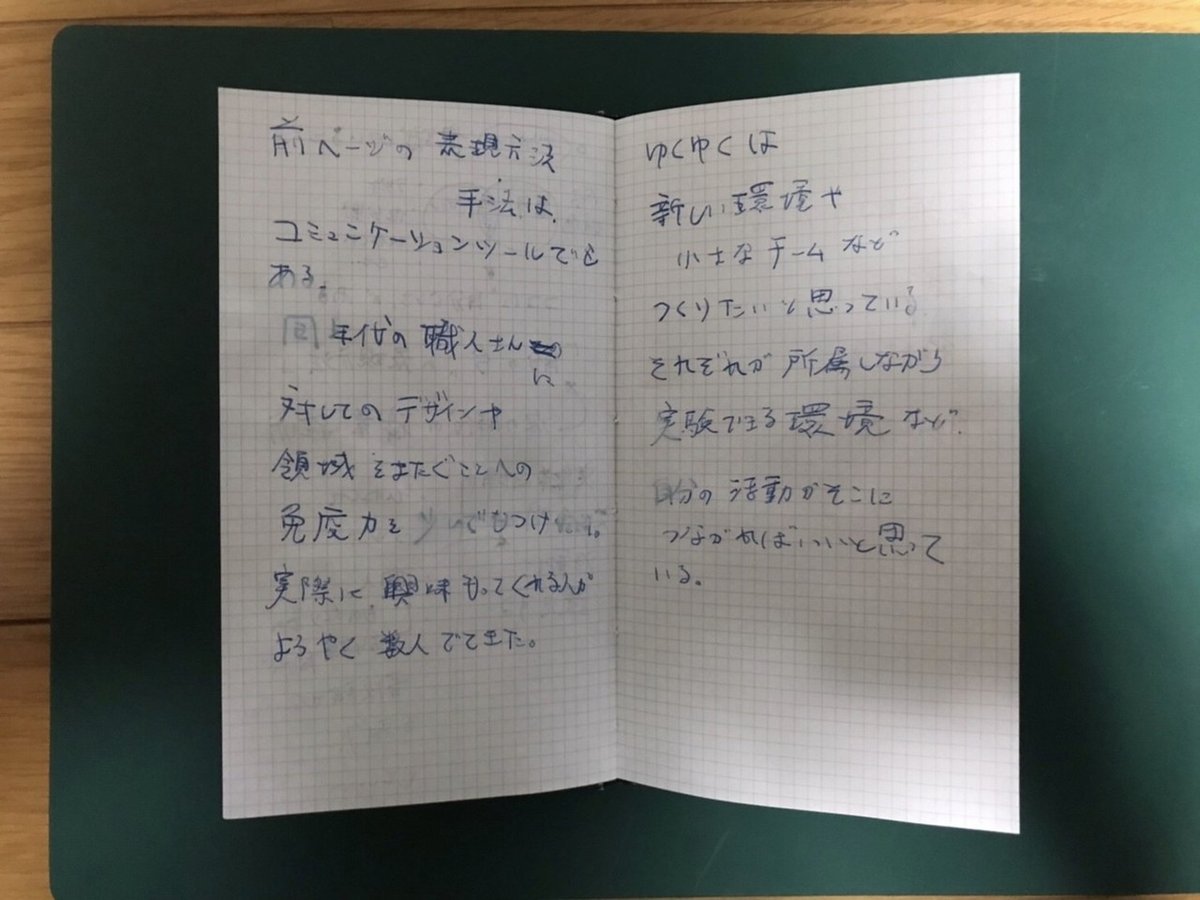 前ページの表現方法
手法は、
コミュニケーションツールでも
ある。
同年代の職人さん
に
対してのデザインや
領域をまたぐことへの
免疫力を少しでもつけ
実際に興味もってくれる人が
ようやく数人でてきた。
ゆくゆくは
新しい環境や
小さなチームなど
つくりたいと思っている
それぞれが所属しながら
実験できる環境など。
自分の活動がそこに
つながればいいと思って
いる。